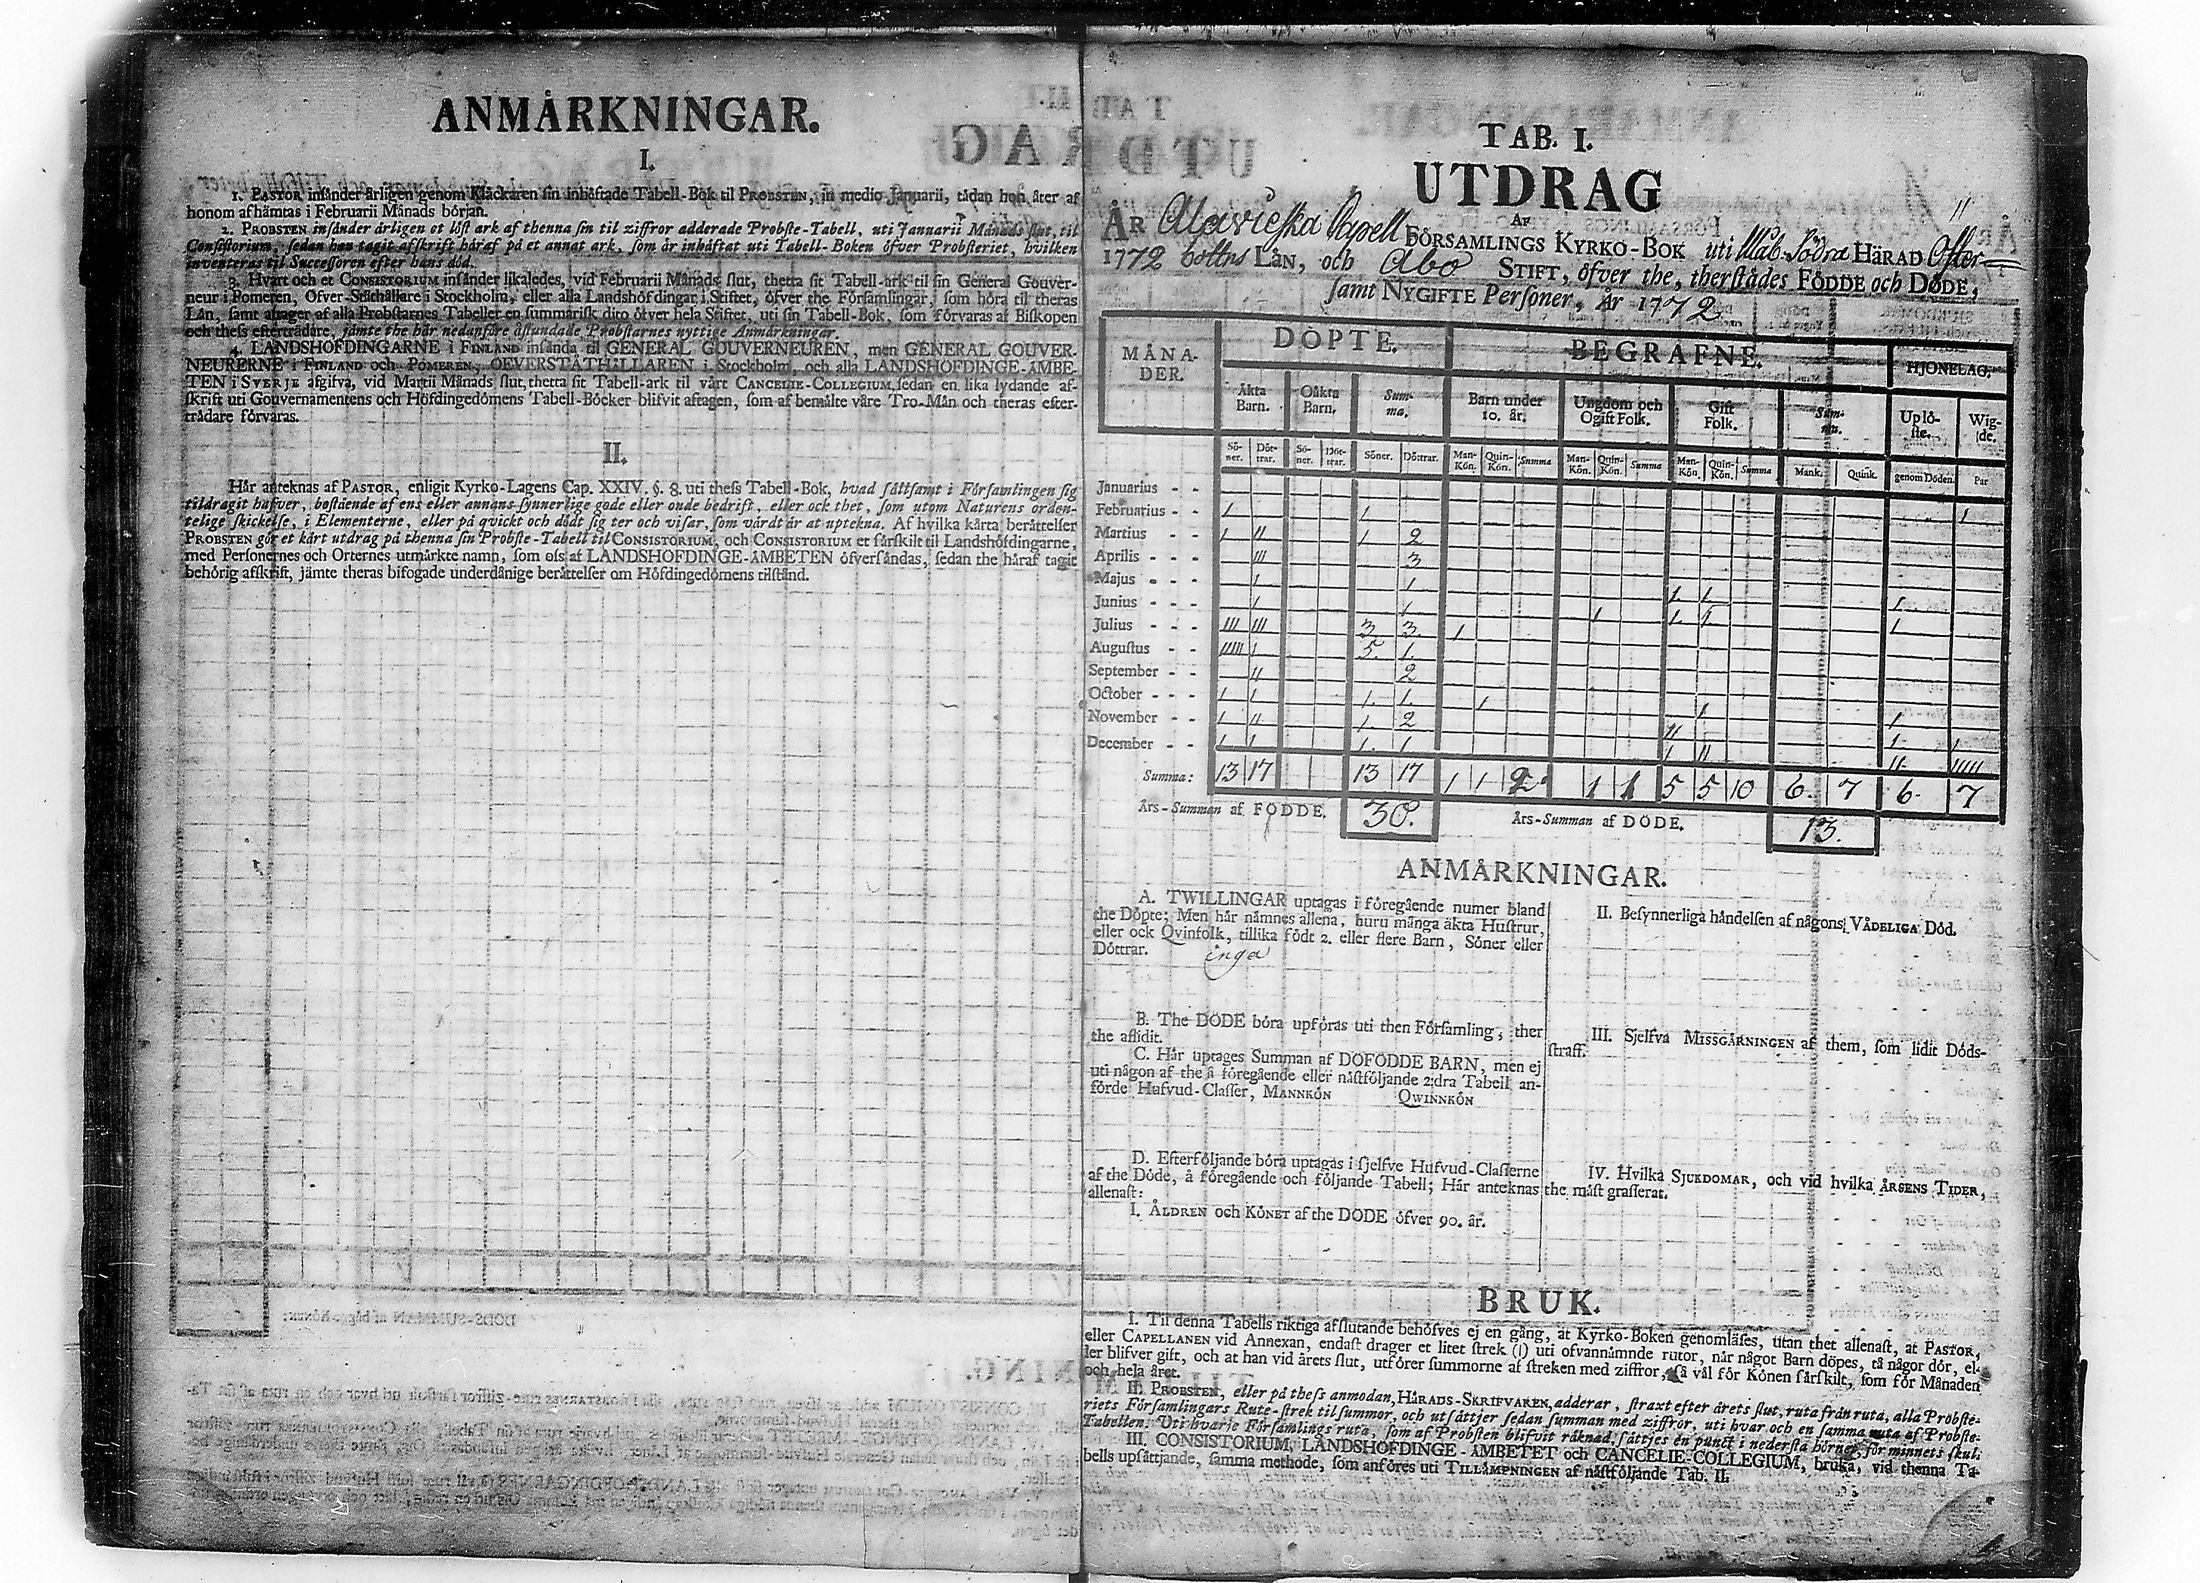 ANMÅRKNINGAR.
I.
1. PASTOR insånder årligen genom Klåckaren sin inhåftade Tabell-Bok til PROBSTEN, in medio Januarii, tådan hon åter af
honom afhåmtas i Februarii Månads början.
2. PROBSTEN insånder årligen et löst ark af thenna sin til ziffror adderade Probste-Tabell, uti Januarii Månads slut, til
Consistorium, sedan han tagit afskrift håraf på et annat ark, som år inhåftat uti Tabell-Boken öfver Probsteriet, hvilken
inventeras til Successoren efter hans död.
3. Hvart och et CONSISTORIUM insånder likaledes, vid Februarii Månads slut, thetta sit Tabell-ark til sin General Gouver-
neur i Pomeren, Ofver-Ståthållare i Stockholm, eller alla Landshöfdingar i Stiftet, öfver the Församlingar, som höra til theras
Lån, samt afrager af alla Probstarnes Tabeller en summarisk dito öfver hela Stiftet, uti sin Tabell-Bok, som förvaras af Biskopen
och thess efterträdare, jämte the hår nedanföre åstundade Probstarnes nyttige Anmårkningar.
4. LANDSHÖFDINGARNE i FINLAND insånda til GENERAL GOUVERNEUREN, men GENERAL GOUVER-
NEURERNE i FINLAND och POMEREN, OEFVERSTÅTHÅLLAREN i Stockholm, och alla LANDSHÖFDINGE-ÅMBE-
TEN i SVERJE afgifva, vid Martii Månads slut, thetta sit Tabell-ark til vårt CANCELIE-COLLEGIUM, sedan en lika lydande af-
skrift uti Gouvernamentens och Höfdingedömens Tabell-Böcker blifvit aftagen, som af bemålte våre Tro-Mån och theras efter-
trådare förvaras.
II.
Hår anteknas af PASTOR, enligit Kyrko-Lagens Cap. XXIV. §. 8. uti thess Tabell-Bok, hvad sållsamt i Församlingen sig
tildragit hafver, bestående af ens eller annans synnerlige gode eller onde bedrift, eller ock thet, som utom Naturens orden-
telige skickelse, i Elementerne, eller på qvickt och dödt sig ter och visar, som vårdt år at uptekna. Af hvilka kårta beråttelser
PROBSTEN gör et kårt utdrag på thenna sin Probste-Tabell til CONSISTORIUM, och CONSISTORIUM et sårskilt til Landshöfdingarne,
med Personernes och Orternes utmårkte namn, som oss af LANDSHÖFDINGE-ÅMBETEN öfversåndas, sedan the håraf tagit
behörig afskrift, jämte theras bifogade underdånige beråttelser om Höfdingedömens tilstånd.
TAB. I.
UTDRAG
AF
ÅR Alavieska Capell FÖRSAMLINGS KYRKO-BOK uti Ulåb. Södra HÄRAD Öster-
1772 bottns LÄN, och Åbo STIFT, öfver the, therstådes FÖDDE och DÖDE,
samt NYGIFTE Personer, År 1772
MÅNA-DER. DÖPTE. BEGRAFNE. HJONELAG.
Åkta Barn. Oåkta Barn. Summa. Barn under 10. år. Ungdom och Ogift Folk. Gift Folk. Summa. Uplö-ste. Wig-de.
Sö-ner. Döt-trar. Sö-ner. Döt-trar. Söner. Döttrar. Man-Kön. Quin-Kön. Summa Man-Kön. Quin-Kön. Summa Man-Kön. Quin-Kön. Summa Mank. Quink. genom Döden. Par
Januarius - -
Februarius - - 1 1 1
Martius - - 1 11 1 2
Aprilis - - - 111 3
Majus - - - 1 1
Junius - - - 1 1 1 1 1
Julius - - - 111 111 3 3 1 1 1 1 1
Augustus - - 11111 1 5. 1.
September - - 11 2
October - - - 1 1 1. 1. 1
November - - 1 11 1 2 1 1
December - - 1 1 1. 1 1 11 11 11111
Summa: 13 17 13 17 1 1 2 1 1 5 5 10 6. 7 6. 7
Års-Summan af FÖDDE. 30. Års-Summan af DÖDE. 13.
ANMÅRKNINGAR.
A. TWILLINGAR uptagas i föregående numer bland
the Döpte; Men hår nåmnes allena, huru många åkta Hustrur,
eller ock Qvinfolk, tillika födt 2. eller flere Barn, Söner eller
Döttrar. inga
B. The DÖDE böra upföras uti then Församling, ther
the aflidit.
C. Hår uptages Summan af DÖFÖDDE BARN, men ej
uti någon af the å föregående eller nåstföljande 2:dra Tabell an-
förde Hufvud-Classer, MANNKÖN QWINNKÖN
D. Efterföljande böra uptagas i sjelfve Hufvud-Classerne
af the Döde, å föregående och följande Tabell; Hår anteknas
allenast:
I. ÅLDREN och KÖNET af the DÖDE öfver 90. år.
II. Besynnerliga håndelsen af någons VÅDELIGA Död.
III. Sjelfva MISSGÅRNINGEN af them, som lidit Döds-
straff.
IV. Hvilka SJUKDOMAR, och vid hvilka ÅRSENS TIDER,
the måst grasserat.
BRUK.
I. Til denna Tabells riktiga afslutande behöfves ej en gång, at Kyrko-Boken genomläses, utan thet allenast, at PASTOR,
eller CAPELLANEN vid Annexan, endast drager et litet strek (|) uti ofvannåmnde rutor, når något Barn döpes, tå någor dör, el-
ler blifver gift, och at han vid årets slut, utförer summorne af streken med ziffror, så vål för Könen sårskilt, som för Månaden
och hela året.
II. PROBSTEN, eller på thess anmodan, HÅRADS-SKRIFVAREN, adderar, straxt efter årets slut, ruta från ruta, alla Probste-
riets Församlingars Rute-strek til summor, och utsåttjer sedan summan med ziffror, uti hvar och en samma ruta af Probste-
Tabellen: Uti hvarje Församlings ruta, som af Probsten blifvit råknad, såttjes en punct i nedersta hörnet, för minnets skul.
III. CONSISTORIUM, LANDSHÖFDINGE-ÅMBETET och CANCELIE-COLLEGIUM, bruka, vid thenna Ta-
bells upsåttjande, samma methode, som anföres uti TILLÅMPNINGEN af nåstföljande Tab. II.